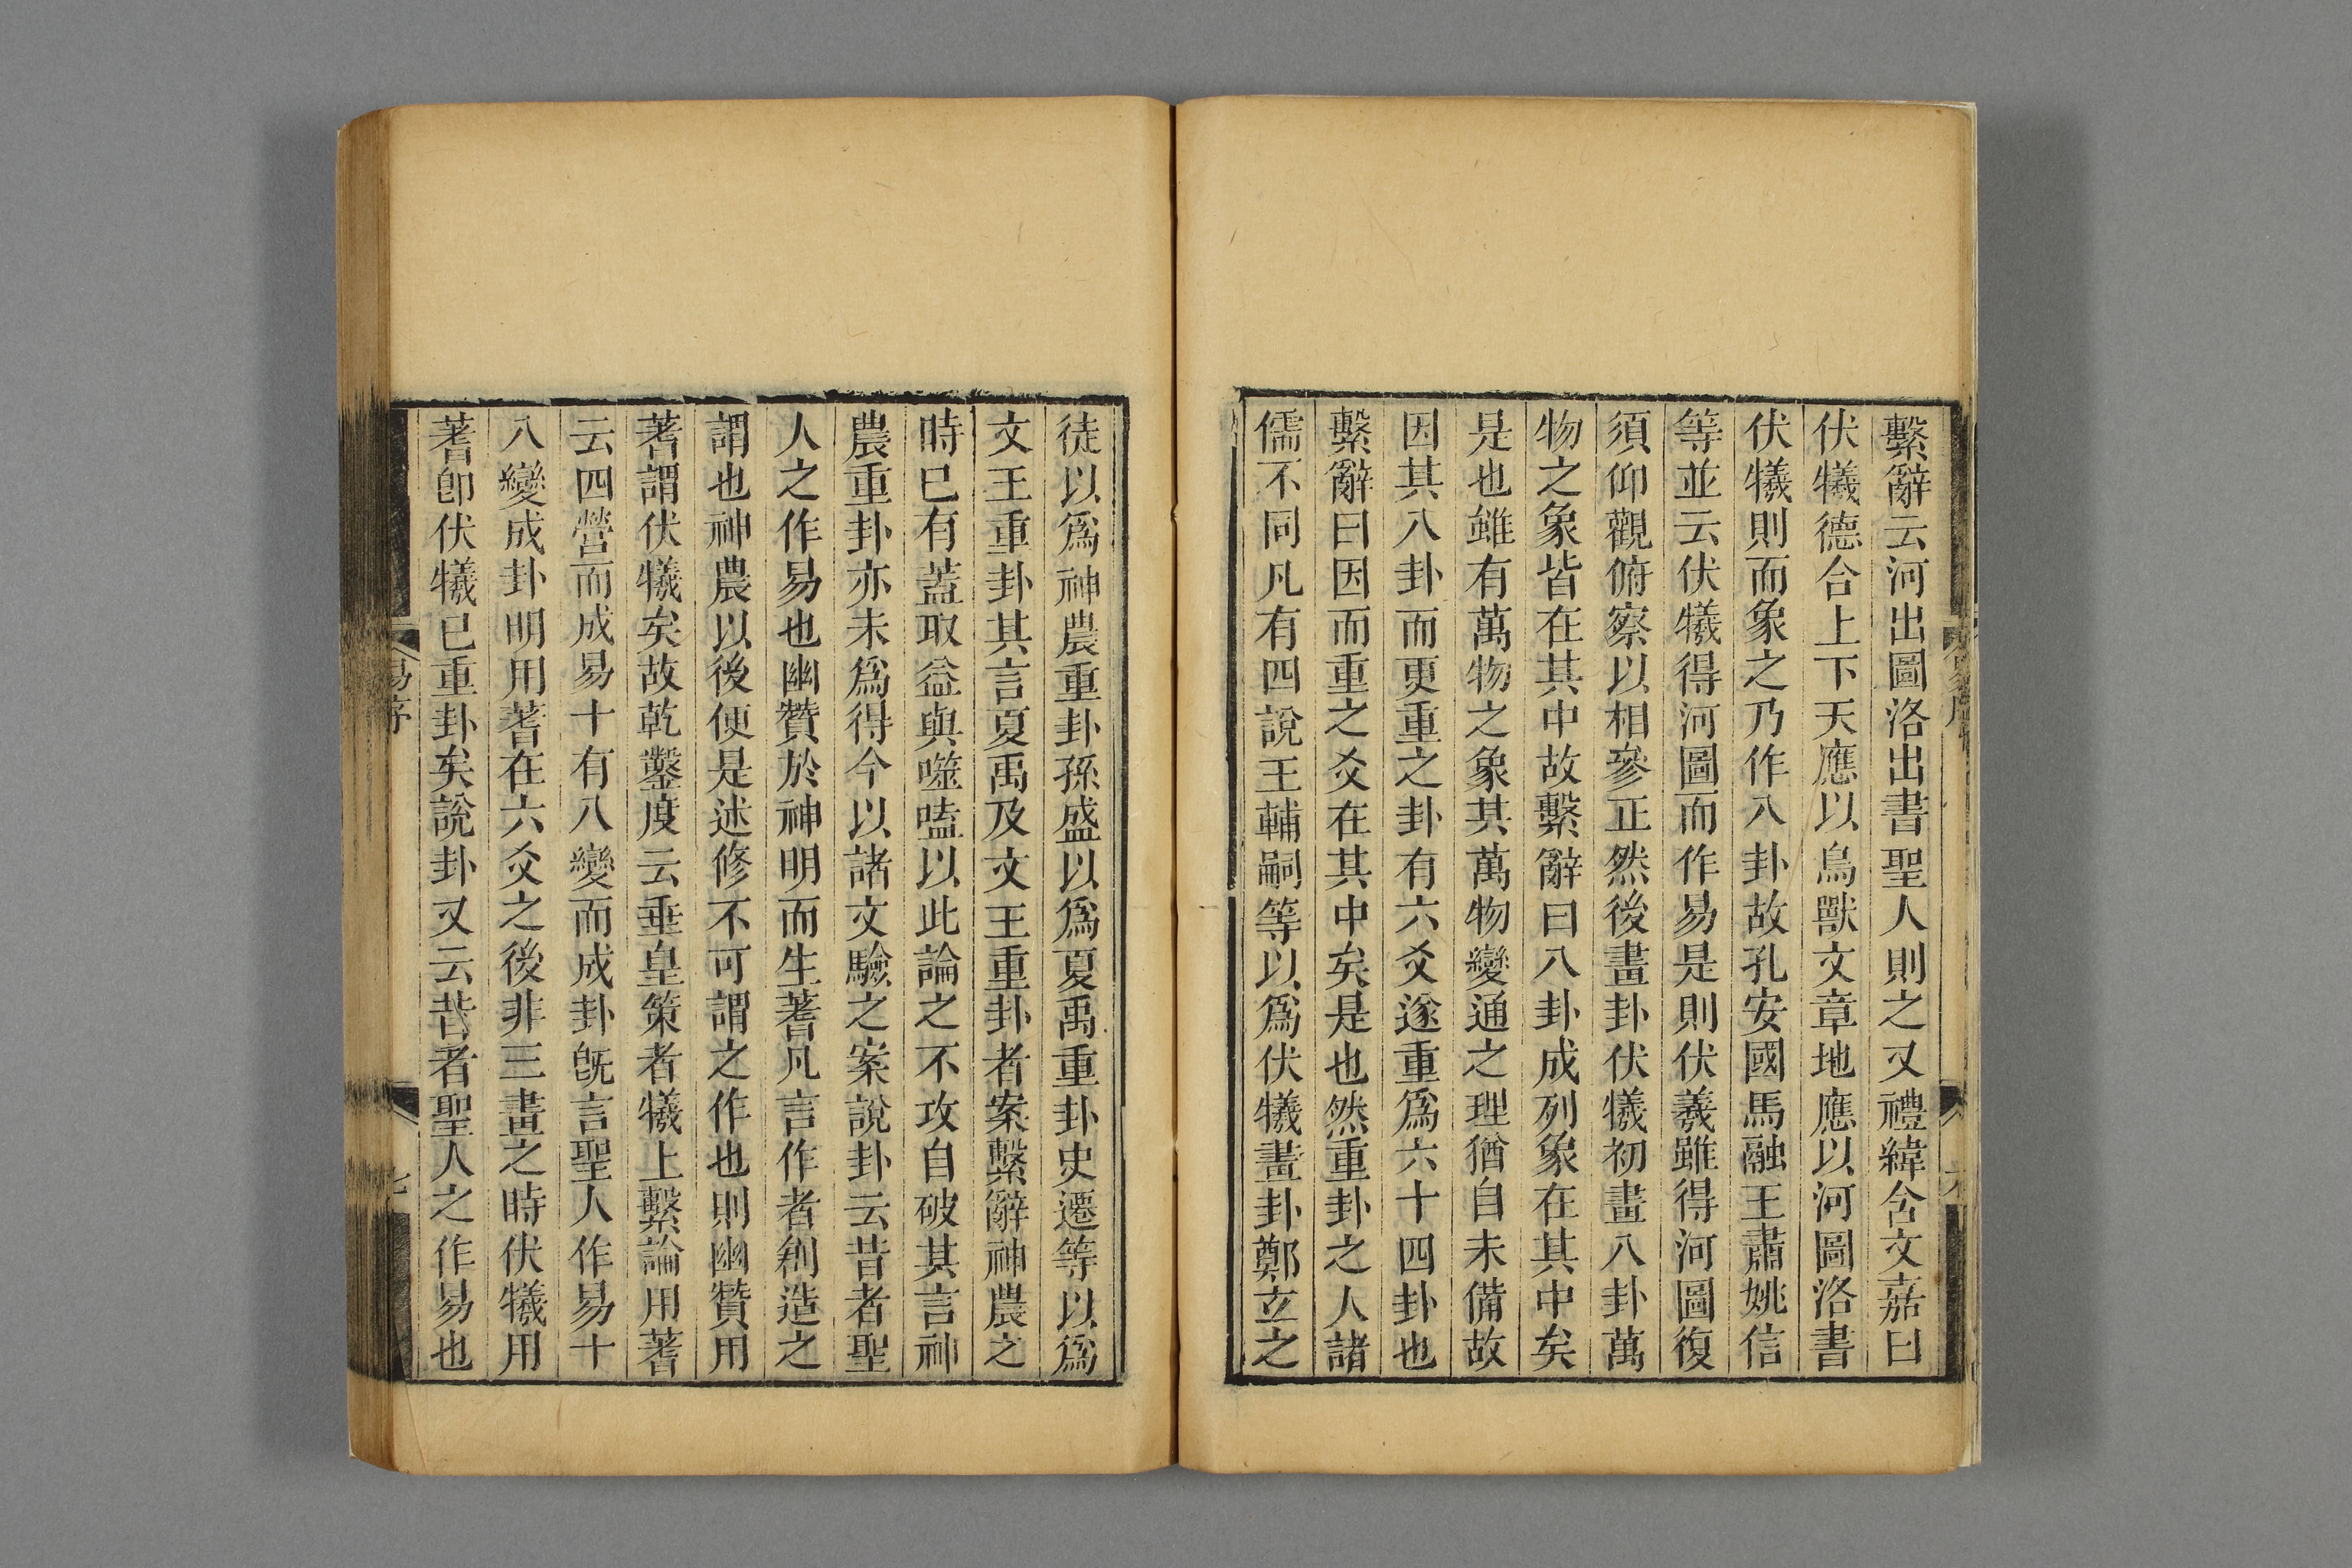 繫辭云河出圖洛出書聖人則之又禮緯含文嘉曰
伏犧德合上下天應以鳥獸文章地應以河圖洛書
伏犧則而象之乃作八卦故孔安國馬融王肅姚信
等並云伏犧得河圖而作易是則伏羲雖得河圖復
須仰觀俯察以相參正然後畫卦伏犧初畫八卦萬
物之象皆在其中故繫辭曰八卦成列象在其中矣
是也雖有萬物之象其萬物變通之理猶自未備故
因其八卦而更重之卦有六爻遂重爲六十四卦也
繫辭曰因而重之爻在其中矣是也然重卦之人諸
儒不同凡有四說王輔嗣等以爲伏犧畫卦鄭玄之
徒以爲神農重卦孫盛以爲夏禹重卦史遷等以爲
文王重卦其言夏禹及文王重卦者案繫辭神農之
時已有蓋取益與噬嗑以此論之不攻自破其言神
農重卦亦未爲得今以諸文驗之案說卦云昔者聖
人之作易也幽贊於神明而生蓍凡言作者創造之
謂也神農以後便是述修不可謂之作也則幽贊用
蓍謂伏犧矣故乾鑿度云垂皇策者犧上繫論用蓍
云四營而成易十有八變而成卦旣言聖人作易十
八變成卦明用蓍在六爻之後非三畫之時伏犧用
蓍卽伏犧已重卦矣說卦又云昔者聖人之作易也
易序
七